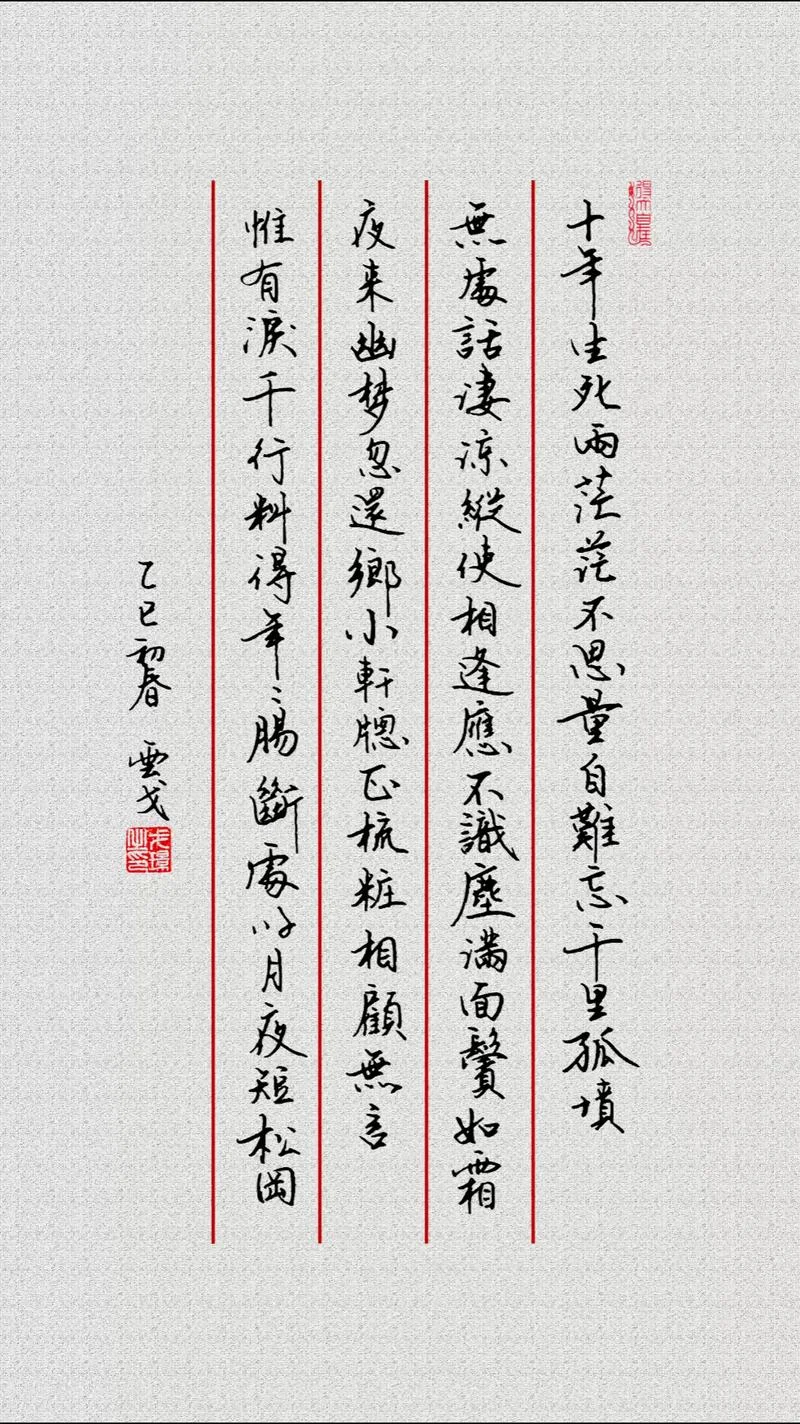 十年生死兩茫茫不思量自難忘千里孤墳
無處話凄涼縱使相逢應不識塵滿面鬢如霜
夜来幽梦忽還鄉小軒牕正梳粧相顧無言
惟有淚千行料得年〻腸斷處明月夜短松岡
乙巳初春 雲戈